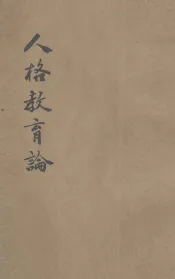 人格教育論